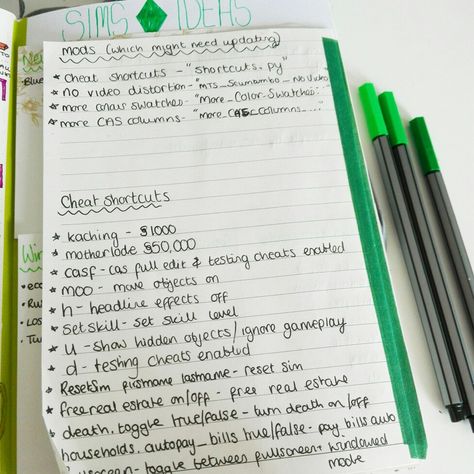 SIMS IDEAS
MODS (which might need updating)
* Cheat shortcuts - "shortcuts.py"
* NO video distortion - "MTS_Scumbumbo_No Video
* more swatches - "More_Color_Swatches...
* more CAS columns - "More_CAS_Columns_..."
Cheat Shortcuts
* kaching - §1000
* motherlode §50,000
* casf - cas full edit & testing cheats enabled
* moo - move objects on
* h - headline effects off
* set skill - set skill level
* u - show hidden objects/ignore gameplay
* d - testing cheats enabled
* ResetSim firstname lastname - reset sim
* freerealestate on/off - free real estate
* death.toggle true/false - turn death on/off
households.autopay_bills true/false - pay bills auto
- toggle between fullscreen + windowed
mode